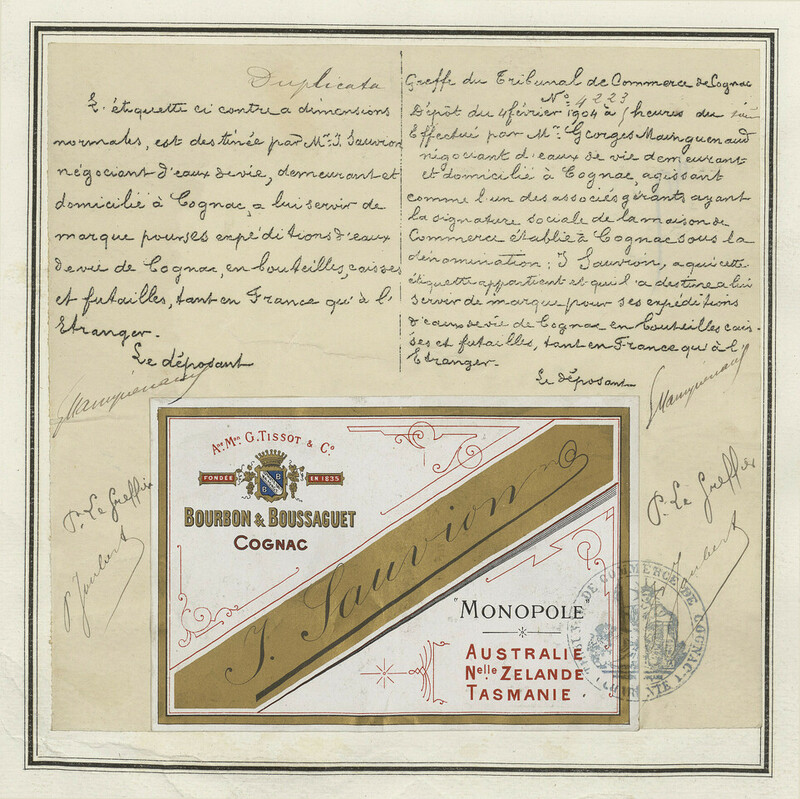 Duplicata
L'étiquette ci contre a dimensions
normales, est destinée par Mr. J. Sauvion
négociant d'eaux de vie, demeurant et
domicilié à Cognac, a lui servir de
marque pour ses expéditions d'eaux
de vie de Cognac, en bouteilles, caisses
et futailles, tant en France qu'à l'
Etranger.
Le déposant
GMainguenaud
Pr. Le Greffier
P. Joubert
Greffe du Tribunal de Commerce de Cognac
No. 4223
Dépôt du 4 février 1904 à heures du
Effectué par Mr. Georges Mainguenaud
négociant d'eaux de vie demeurant
et domicilié à Cognac, agissant
comme l'un des associés gérants ayant
la signature sociale de la maison de
Commerce établie à Cognac sous la
dénomination : J Sauvion, a qui cette
étiquette appartient et qu'il a destine a lui
servir de marque pour ses expéditions
d'eaux de vie de Cognac en bouteilles cais-
ses et futailles, tant en France qu'à l'
Etranger.
Le déposant
GMainguenaud
Pr. Le Greffier
Joubert
Ane Mon G. Tissot & Co
FONDÉE EN 1835
B B
BOURBON & BOUSSAGUET
COGNAC
J. Sauvion
MONOPOLE
AUSTRALIE
Nelle ZELANDE
TASMANIE
DE COMMERCE DE COGNAC
CHARENTE